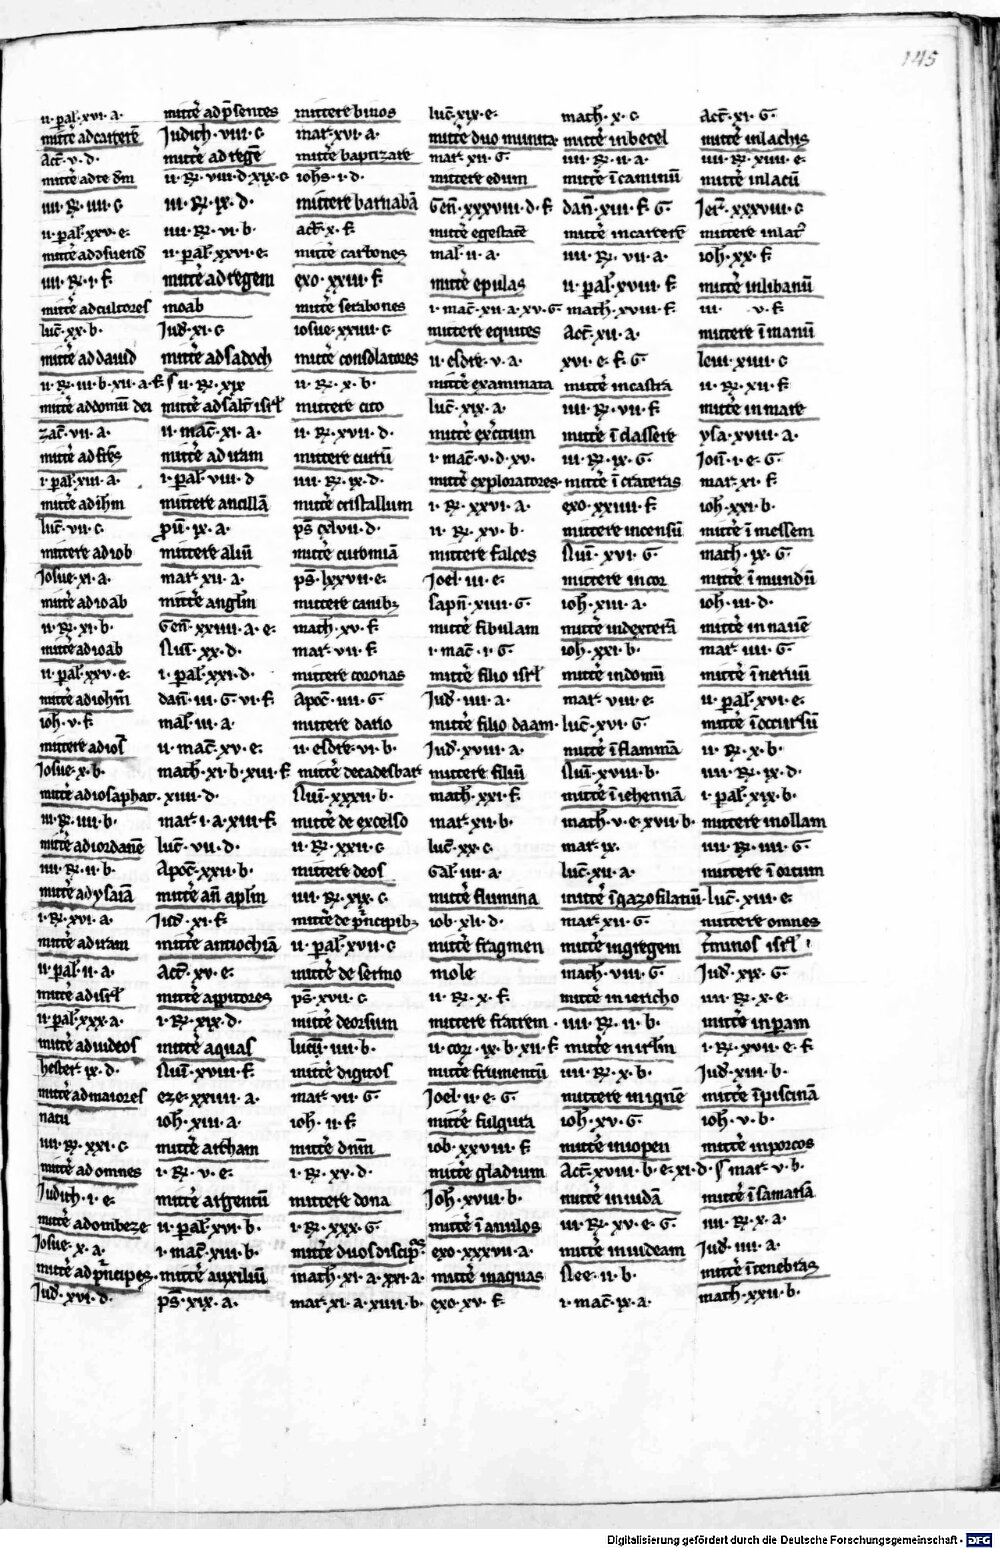 145
ii. pal̄. xvi. a.
mittē ad carcerē
Act̄. v. d.
mittē ad te dm̄
iiii. R̄. iiii. c
ii. pal̄. xxv. e.
iiii. R̄. i. f.
mittē ad cultores
luc̄. xx. b.
mittē ad dauid
ii. R̄. iii. b. xii. a. f
mittē ad domū dei
zac̄. vii. a.
mittē ad fr̄es
i. pal̄. xiii. a.
mittē ad ihm̄
luc̄. vii. c.
mittere ad iob
Josue. xi. a.
mittē ad ioab
ii. R̄. xi. b.
mittē ad ioab
ii. pal̄. xxv. e.
mittē ad iohm̄
ioh̄. v. f.
mittere ad ios̄
Josue. x. b.
mittē ad iosaphat.
iii. R̄. iiii. b.
mittē ad iordanē
iiii. R̄. ii. b.
mittē ad ysaiā
i. R̄. xvi. a.
mittē ad uram
ii. pal̄. ii. a.
mittē ad isrl̄
ii. pal̄. xxx. a.
mittē ad iudeos
hester. ix. d.
mittē ad maiores
natu
iiii. R̄. xxi. c
mittē ad omnes
Judich. i. e.
mittē ad ombeze
Josue. x. a.
mittē ad p̄ncipes.
Jud̄. xvi. d.
mittē ad p̄sentes
Judich. viii. c
mittē ad regē
ii. R̄. viii. d. xix. c
iii. R̄. ix. d.
iiii. R̄. vi. b.
ii. pal̄. xxvi. e.
mittē ad regem
moab
Jud̄. xi. c
mittē ad sadoch
ii. R̄. xix
mittē ad salt̄ isrl̄
ii. mac̄. xi. a.
mittē ad uram
i. pal̄. viii. d
mittere ancillā
ꝓū. ix. a.
mittere aliū
mar. xii. a.
mittē anglm̄
Gen̄. xxiiii. a. e.
Nūī. xx. d.
i. pal̄. xxi. d.
dan̄. iii. G. vi. f.
mal̄. iii. a.
ii. mac̄. xv. e.
math̄. xi. b. xiii. f
xiiii. d.
mar. i. a. xiii. f.
luc̄. vii. d.
Apoc̄. xxii. b.
mittē an̄ aplm̄
Jud̄. xi. f.
mittē antiochiā
Act̄. xv. e.
mittē appitores
i. R̄. xix. d.
mittē aquas
Nūī. xviii. f.
eze. xxiiii. a.
ioh̄. xiii. a.
mittē archam
i. R̄. v. e.
mittē argentū
ii. pal̄. xvi. b.
i. mac̄. xiii. b.
mittē auxiliū
ps̄. xix. a.
mittere binos
mar. xvi. a.
mittē baptizare
ioh̄s. i. d.
mittere barnabā
act̄. x. f.
mittē carbones
exo. xxiii. f.
mittē scrabones
iosue. xxiiii. c
mittē consolatores
ii. R̄. x. b.
mittere cito
ii. R̄. xvii. d.
mittere currū
iiii. R̄. ix. d.
mittē cristallum
ps̄ cxlvii. d.
mittē cinomiā
ps̄. lxxvii. e.
mittere canibꝫ
math̄. xv. f.
mar. vii. f.
mittere coronas
Apoc̄. iiii. G
mittere dario
ii. esdre. vi. b.
Nūī. xxxii. b.
mittē de excelso
ii. R̄. xxii. c
mittere deos
iiii. R̄. xix. c
mittē de p̄ncipibꝫ
ii. pal̄. xvii. c
mittē de sermo
ps̄. xvii. c
mittē deorsum
mittē digitos
mar. vii. G
ioh̄. ii. f.
mittē dnm̄
i. R̄. xv. d.
mittere dona
i. R̄. xxx. G.
mittē duos discip̄.
math̄. xi. a. xxi. a.
mar. xi. a. xiiii. b.
luc̄. xix. e.
mittē duo minuta.
mar. xii. G.
mittere edum
Gen̄. xxxviii. d. f
mittē egestatē
mal̄. ii. a.
mittē epulas
i. mac̄. xii. a. xv. G
mittere equites
ii. esdre. v. a.
mittē examinata
luc̄. xix. a.
mittē ex̄citum
i. mac̄. v. d. xv.
mittē exploratores.
i. R̄. xxvi. a.
ii. R̄. xv. b.
mittere falces
Joel. iii. e.
sapn̄. xiiii. G.
mittē fibulam
i. mac̄. i. G
mittē filio isrl̄
Jud̄. iiii. a.
mittē filio daam.
Jud̄. xviii. a.
mittere filiū
math̄. xxi. f.
mar. xii. b.
luc̄. xx. c.
Gal̄. iiii. a.
mittē flumina
iob. xli. d.
mittē fragmen
mole
ii. R̄. x. f.
mittere fratrem.
ii. cor̄. ix. b. xii. f
mittē frumentū
Joel. ii. e. G
mittē fulgura
iob. xxviii. f
mittē gladium
Joh̄. xviii. b.
mittē ī anulos
exo. xxxvii. a.
mittē in aquas
exo. xv. f.
math̄. x. c.
mittē in becel
iiii. R̄. ii. a.
mittē ī caminū
dan̄. xiii. f. G.
mittē in carcerē
iiii. R̄. vii. a.
ii. pal̄. xviii. f.
math̄. xviii. f.
Act̄. xii. a.
xvi. e. f. G
mittē in castra
iiii. R̄. vii. f
mittē ī classere
iii. R̄. ix. G.
mittē ī crateras
exo. xxiiii. f.
mittere incensū
Nūī. xvi. G.
mittere in cor
ioh̄. xiii. a.
mittē in dexterā
ioh̄. xxi. b.
mittē in domū
mar. viii. e.
luc̄. xvi. G
mittē ī flammā
Nūī. xviii. b.
mittē ī iehennā
math̄. v. e. xvii. b.
mar. ix.
luc̄. xii. a.
mittē ī gazofilatiū.
mar. xii. G
mittē in gregem
math̄. viii. G
mittē in iericho
iiii. R̄. ii. b.
mittē in irlm̄
iiii. R̄. x. b.
mittere in ignē
ioh̄. xv. G.
mittē in iopen
Act̄. xviii. b. e. xi. d.
mittē in iudā
iii. R̄. xv. e. G.
mittē in iudeam
Nee. ii. b.
i. mac̄. ix. a.
Act̄. xi. G.
mittē in lachis
iiii. R̄. xiiii. e.
mittē in lacū
Jer̄. xxxviii. c
mittere in lat̄
ioh̄. xx. f.
mittē in libanū
iii. v. f.
mittere ī manū
leui. xiiii. c
ii. R̄. xii. f
mittē in mare
ysa. xviii. a.
Jon̄. i. e. G
mar. xi. f
ioh̄. xxi. b.
mittē ī messem
math̄. ix. G
mittē ī mundū
ioh̄. iii. d.
mittē in nauē
mar. iiii. G
mittē ī neruū
ii. pal̄. xvi. e.
mittē ī occursū
ii. R̄. x. b.
iiii. R̄. ix. d.
i. pal̄. xix. b.
mittere in ollam
iiii. R̄. iiii. G.
mittere ī ortum
luc̄. xiii. e.
mittere omnes
t̄minos isrl̄
Jud̄. xix. G
iiii. R̄. x. e.
mittē in p̄am
i. R̄. xvii. e. f
Jud̄. xiii. b.
mittē ī piscinā
ioh̄. v. b.
mittē in porcos
mar. v. b.
mittē ī samariā
iiii. R̄. x. a.
Jud̄. iiii. a.
mittē ī tenebras
math̄. xxii. b.
Digitalisierung gefördert durch die Deutsche Forschungsgemeinschaft - DFG